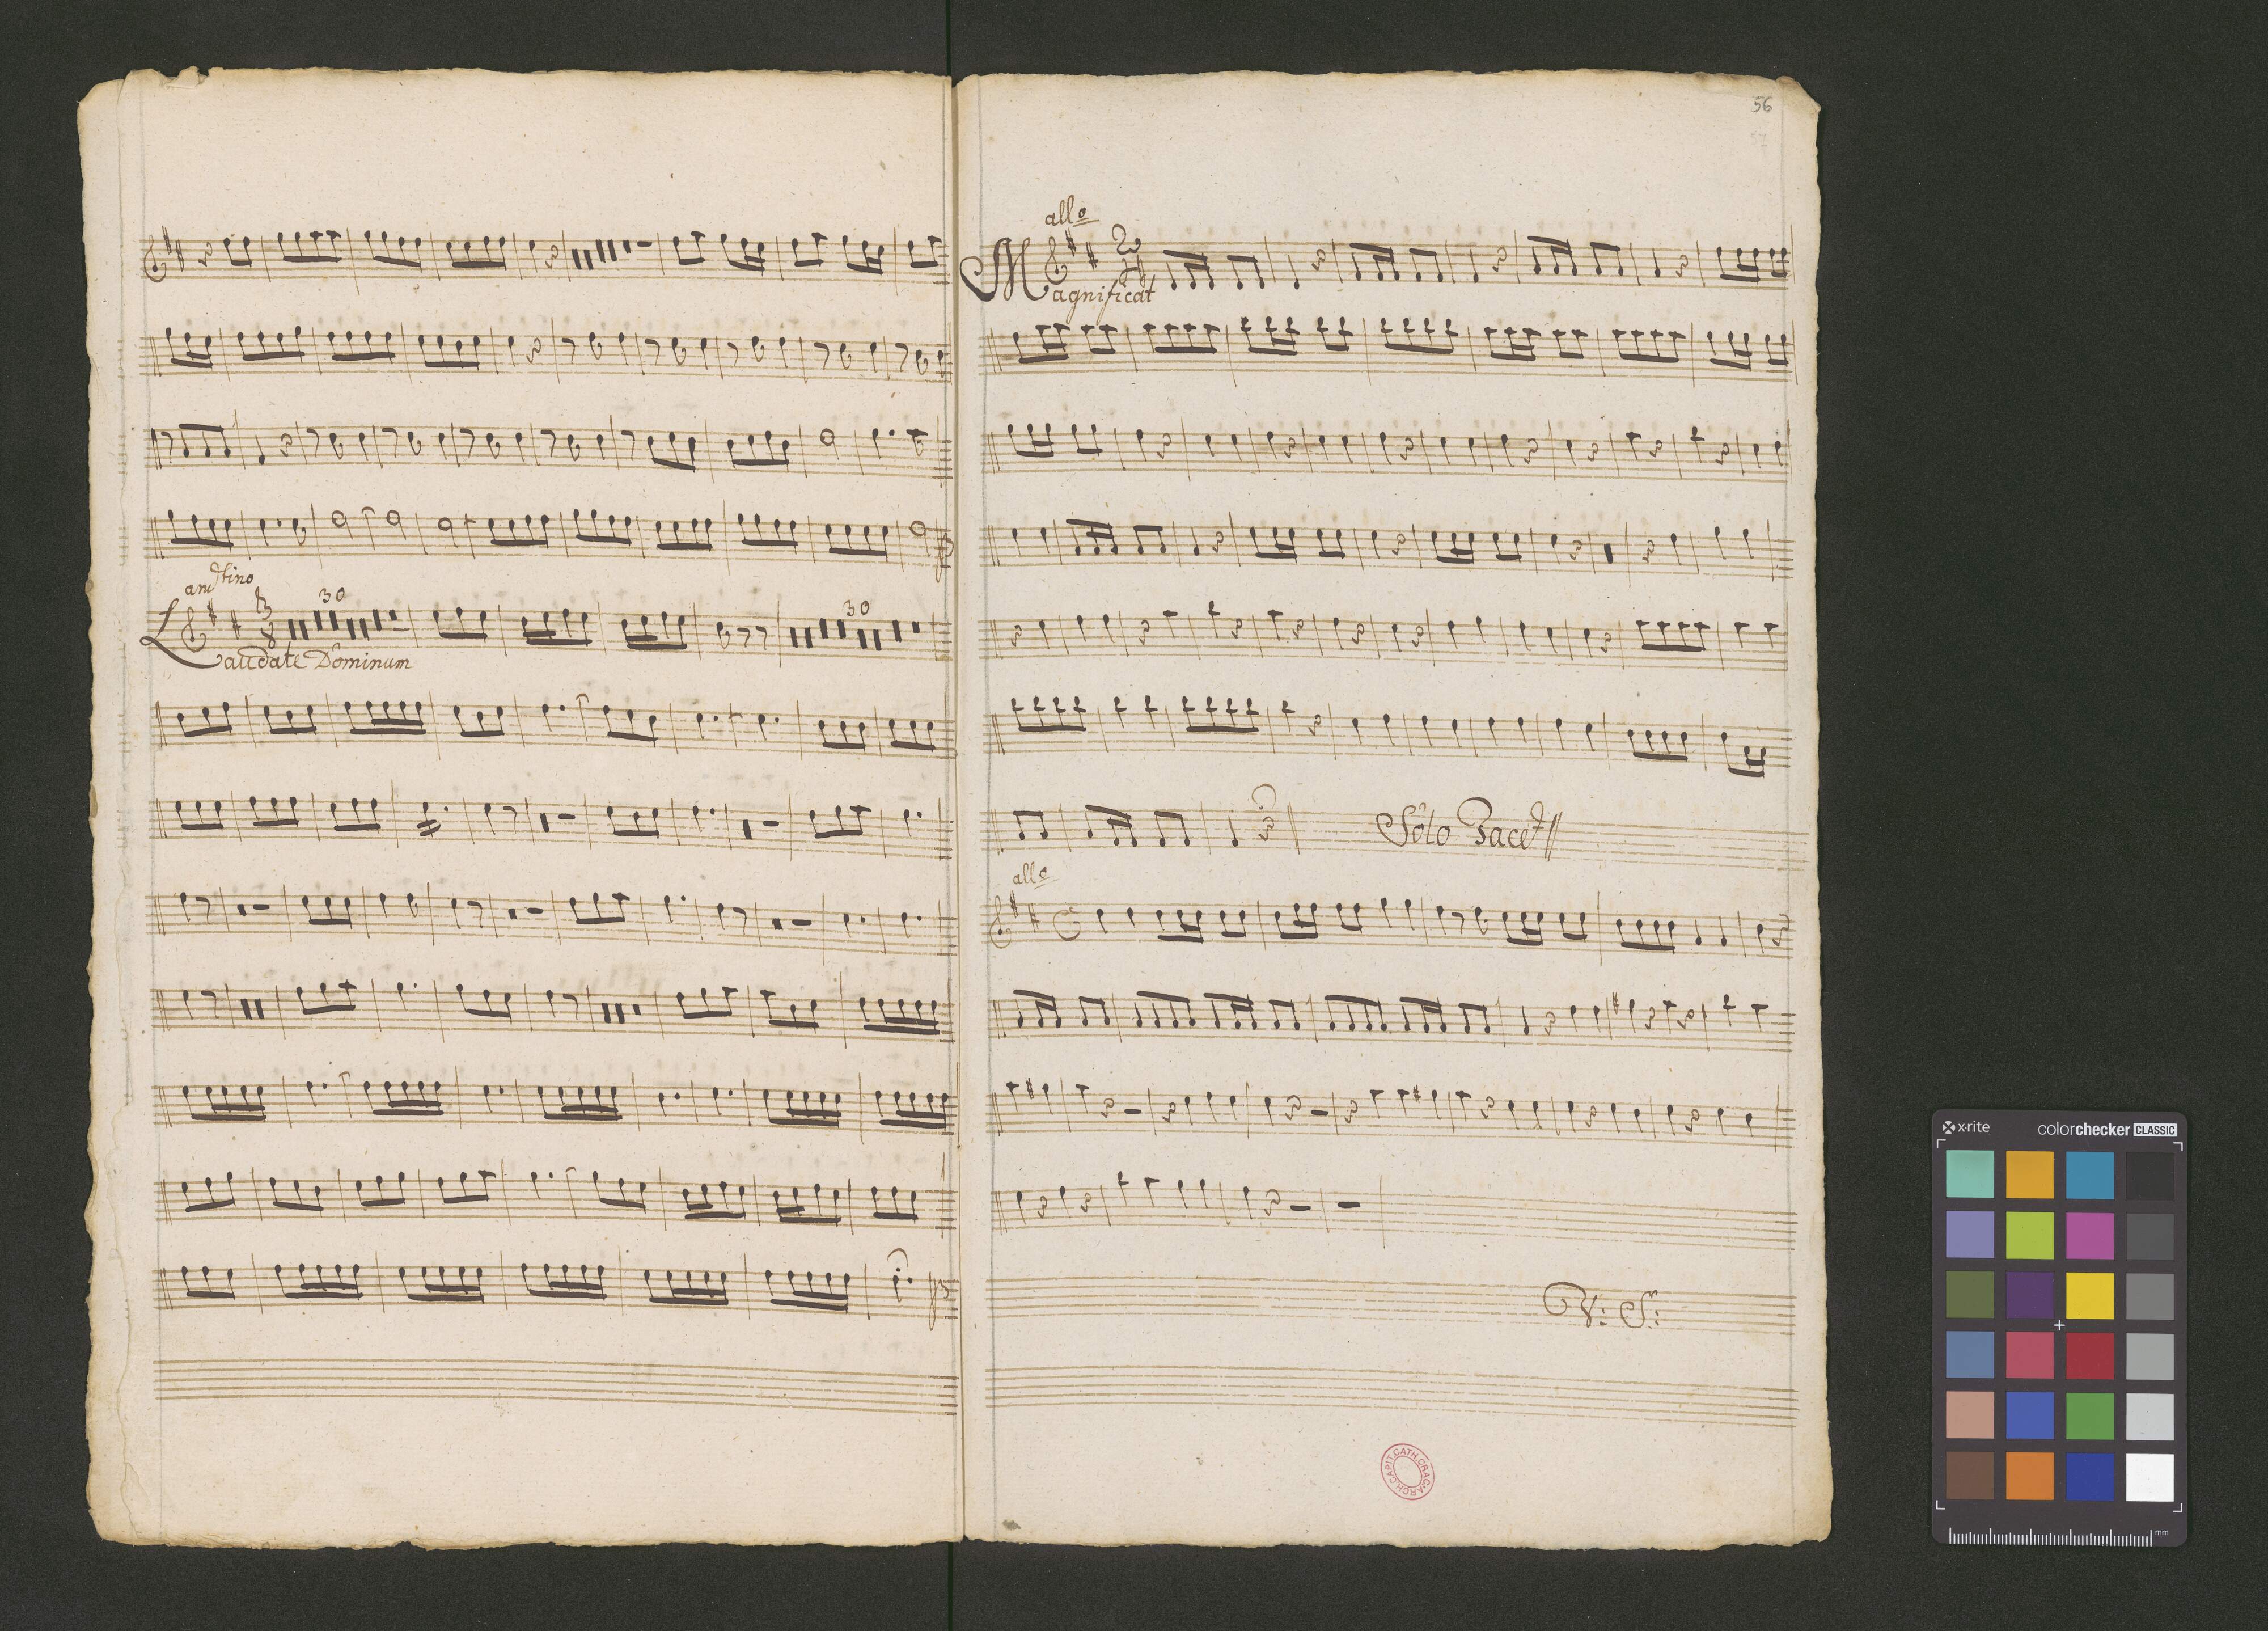 andtino
30
30
3
8
Laudate Dominum
56
allo
2
4
Magnificat
Solo Tacet
allo
V: S:
ARCH. CAPIT. CATH. CRAC.
x-rite
colorchecker CLASSIC
mm